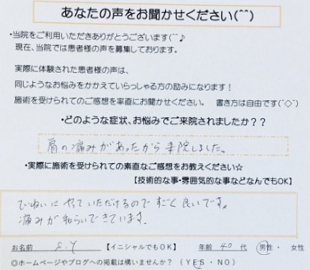 あなたの声をお聞かせください(^^)
・当院をご利用いただきありがとうございます(^^♪
現在、当院では患者様の声を募集しております。
実際に体験された患者様の声は、
同じようなお悩みをかかえていらっしゃる方の励みになります！
施術を受けられてのご感想を率直にお聞かせください。 書き方は自由です(^◇^)
・どのような症状、お悩みでご来院されましたか？？
肩の痛みがあったから来院しました。
・実際に施術を受けられての素直なご感想をお教えください☆
【技術的な事・雰囲気的な事などなんでもOK】
ていねいにやっていただけるのですごく良いです。
痛みが和らいできています。
お名前 S.Y 【イニシャルでもOK】 年齢 40 代 男性 ・ 女性
◎ホームページやブログへの掲載は構いませんか？ (YES・NO)